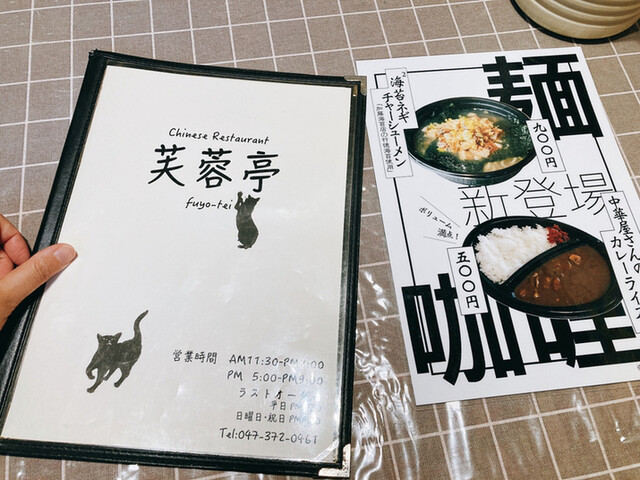 Chinese Restaurant
芙蓉亭
fuyo-tei
営業時間 AM11:30-PM
PM 5:00-PM9:00
ラストオーダー
平日PM
日曜日・祝日PM
Tel:047-372-0461
麺
海苔ネギ
チャーシューメン
九〇〇円
新登場
ボリューム
満点!
中華屋さんの
カレーライス
五〇〇円
咖喱